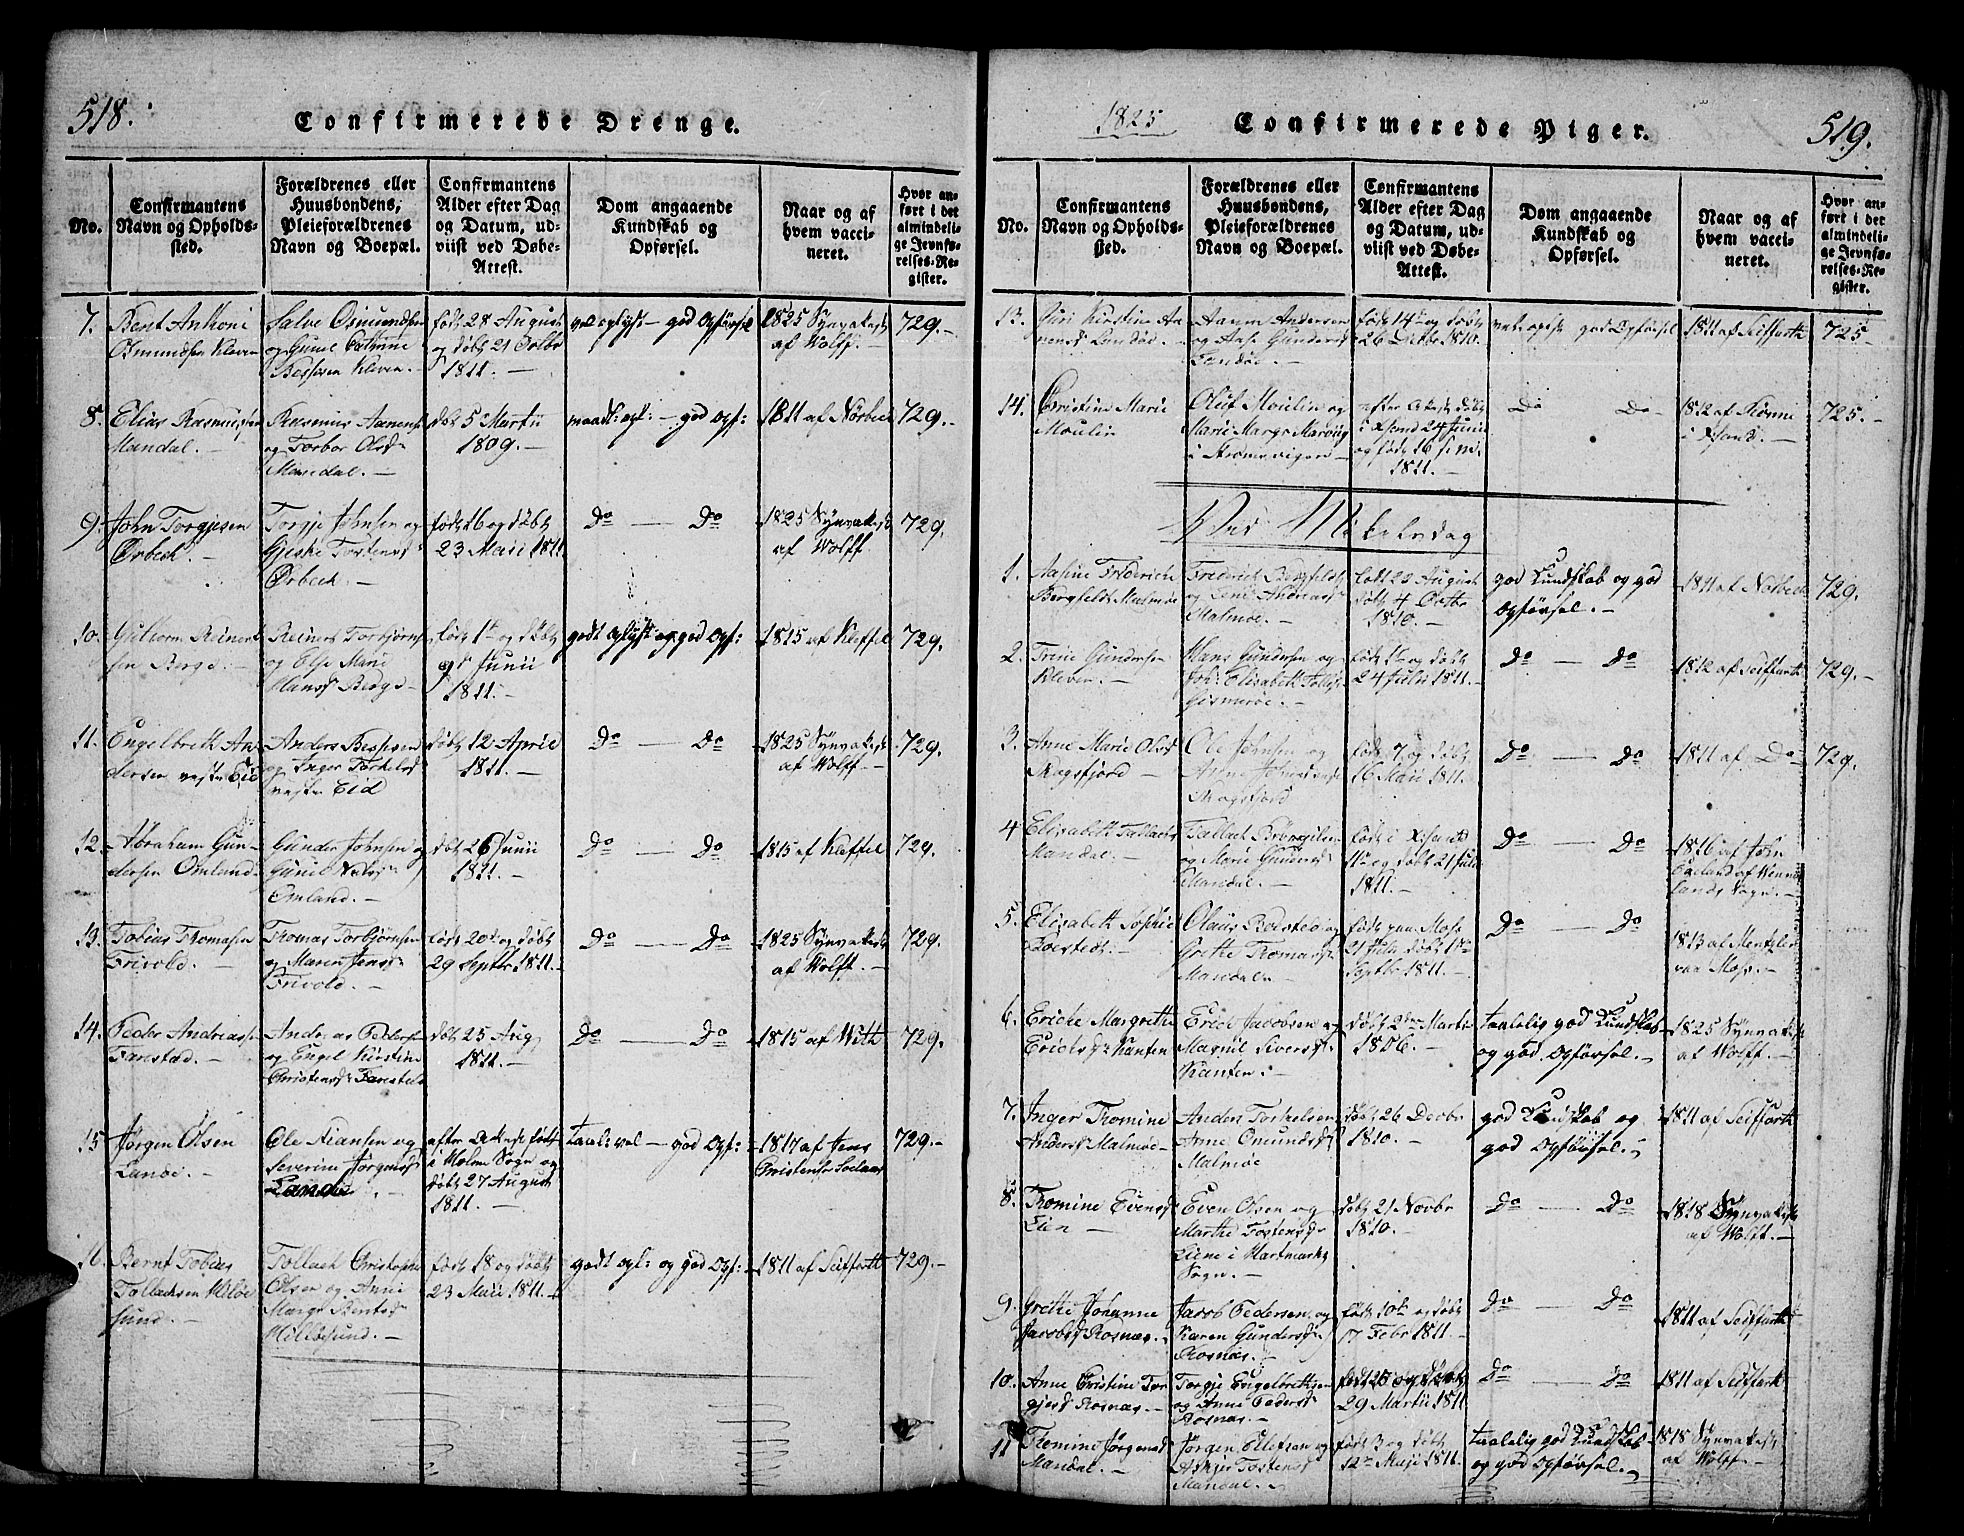 518.
Confirmerede Drenge.
No.
Confirmantens
Navn og Opholds-
sted.
Forældrenes eller
Huusbondens,
Pleieforældrenes
Navn og Boepæl.
Confirmantens
Alder efter Dag
og Datum, ud-
viist ved Døbe-
Attest.
Dom angaaende
Kundskab og
Opførsel.
Naar og af
hvem vacci-
neret.
Hvor an-
ført i det
almindeli-
ge Jevnfø-
relses-Re-
gister.
7.
Bent Anthoni
Osmundsen Kleven
Salve Osmundsen
og Gunil Cathrine
Bessesen Kleven.
født 28 August
og døbt 21 Octbr
1811.
vel oplyst - god Opførsel
1825 Synvakest
af Wolff.
729.
8.
Elias Rasmusen
Mandal.
Rasmus Aanens
og Torbor Olsd
Mandal.
døbt 5 Martii
1809.
maadl: opl: - god Opf:
1811 af Nørbech
729.
9.
John Torgjesen
Ørbech.
Torgje Johnsen og
Gjeske Tostensd
Ørbech.
født 16 og døbt
23 Maii 1811
Do - Do
1825 Synvakest
af Wolff.
729.
10.
Guthorm Reinert
sen Berge.
Reinert Torbjørns
og Else Marie
Hansd Berge
født 1te og døbt
9de Junii
1811.
godt oplyst og god Opf:
1815 af Kleffel
729.
11.
Engelbreth An-
dersen vestre Eid
Anders Bessesen
og Inger Torkelsd
vestre Eid
døbt 12 April
1811.
Do - Do
1825 Synvakest
af Wolff.
729.
12.
Abraham Gun-
dersen Omland.
Gunder Johnsen og
Gunil
Omland.
døbt 26 Junii
1811.
Do - Do
1815 af Kleffel
729.
13.
Tobias Thomasen
Frivold.
Thomas Torbjørnsen
og Maren Jensd
Frivold.
født 20de og døbt
29 Septbr 1811.
Do - Do
1825 Synvakest
af Wolff.
729.
14.
Peder Andreass
Farestad.
Andreas Peders
og Engel Kirstine
Christensd Farestad
døbt 25 Aug
1811.
Do - Do
1815 af With
729.
15
Jørgen Olsen
Landøe.
Ole Stiansen og
Severine Jørgensd
Landøe.
efter Attest født
i Holme Sogn og
døbt 27 August
1811.
taal: vel - god Opf:
1817 af Jens
Christensen
729.
16.
Bernt Tobias
Tallachsen Hilløe
sund.
Tallach Christoph
Olsen og Anne
Margr Bentsd
Hilløsund.
født 18 og døbt
23 Maii 1811.
godt opl: og god Opf:
1811 af Seiffarth
729.
1825
Confirmerede Piger.
519.
No.
Confirmantens
Navn og Opholds-
sted.
Forældrenes eller
Huusbondens,
Pleieforældrenes
Navn og Boepæl.
Confirmantens
Alder efter Dag
og Datum, ud-
viist ved Døbe-
Attest.
Dom angaaende
Kundskab og
Opførsel.
Naar og af
hvem vacci-
neret.
Hvor an-
ført i det
almindeli-
ge Jevnfø-
relses-Re-
gister.
13.
Siri Kirstine Aa
nensd Landøe.
Aanen Andersen
og Aase Gundersd
Landøe.
født 14de og døbt
26 Octbr 1810.
vel oplyst god Opførsel
1811 af Seiffarth
725.
14.
Christine Marie
Moulin
Oluf Moulin og
Marie Margr
i
efter Attest døbt
i Xsand 24 Junii
og født 16
1811.
Do Do
1812 af
i Xsand.
725.
Ved Mikelsdag
1.
Aasine Friderich
Bergfeldt Malmøe
Frederich Bergfeldt
og Lene Andreasd
Malmøe.
født 20 August
døbt 4 Octbr
1810.
god Kundskab og god
Opførsel.
1811 af Nørbech
729.
2.
Trine Gundersen
Kleven.
Hans Gundersen og
Joh: Elisabeth
Gismerøe.
født 1te og døbt
24 Julii 1811.
Do - Do
1812 af Seiffarth
729.
3.
Anne Marie Olsd
Skogsfjord
Ole Johnsen og
Skogsfjord
født 7 og døbt
16 Maii 1811.
Do - Do
1811 af Do
729.
4
Elisabeth Tallachs
Mandal.
Tallach
og Marie Gundersd
Mandal.
født i Xsand
11te og døbt 21 Julii
1811.
Do - Do
1816 af John
Land af Vennes
lands Sogn.
5.
Elisabeth Sophie
Boestedt.
Olaus Boested og
Grethe Thomasd
Mandal.
født paa Moss
21 Julii døbt 1te
Septbr 1811.
Do Do
1813 af Mentzler
paa Moss.
6.
Ericke Margrethe
Erichsd Kanten
Erich Jacobsen og
Magnil Siversd
Kanten:
døbt 2den Martii
1806.
taalelig god Kundskab
og god Opførsel.
1825 Synvakest
af Wolff.
7.
Inger Tromine
Andersd Malmøe.
Anders Torkelsen
Anne Omundsd
Malmøe
døbt 26 Decbr
1810.
god Kundskab og
god Opførsel.
1811 af Seiffarth
8.
Tromine Evensd
Lien
Even Olsen og
Marthe Tostensd
Liene i Hartmarks
Sogn.
døbt 21 Novbr
1810.
Do - Do
1818 Synvakest
af Wolff.
9.
Grethe Johanne
Jacobsd Rosnæs.
Jacob Pedersen og
Karen Gundersd
Rosnæs.
født 10de og døbt
17 Febr 1811.
Do Do
1811 af Seiffarth
10.
Anne Christine Tor
gjesd Rosnæs.
Torgje Engelbrethsen
og Anne Pedersd
Rosnæs.
født 25 og døbt
29 Martii 1811
Do - Do
1811 af Seiffarth
11
Tromine Jørgensd
Mandal.
Jørgen Ellefsen og
Tostensd
Mandal.
født 3 og døbt
12te Maji 1811.
taalelig god Kundskab
og god Opførsel.
1818 Synvakest
af Wolff.